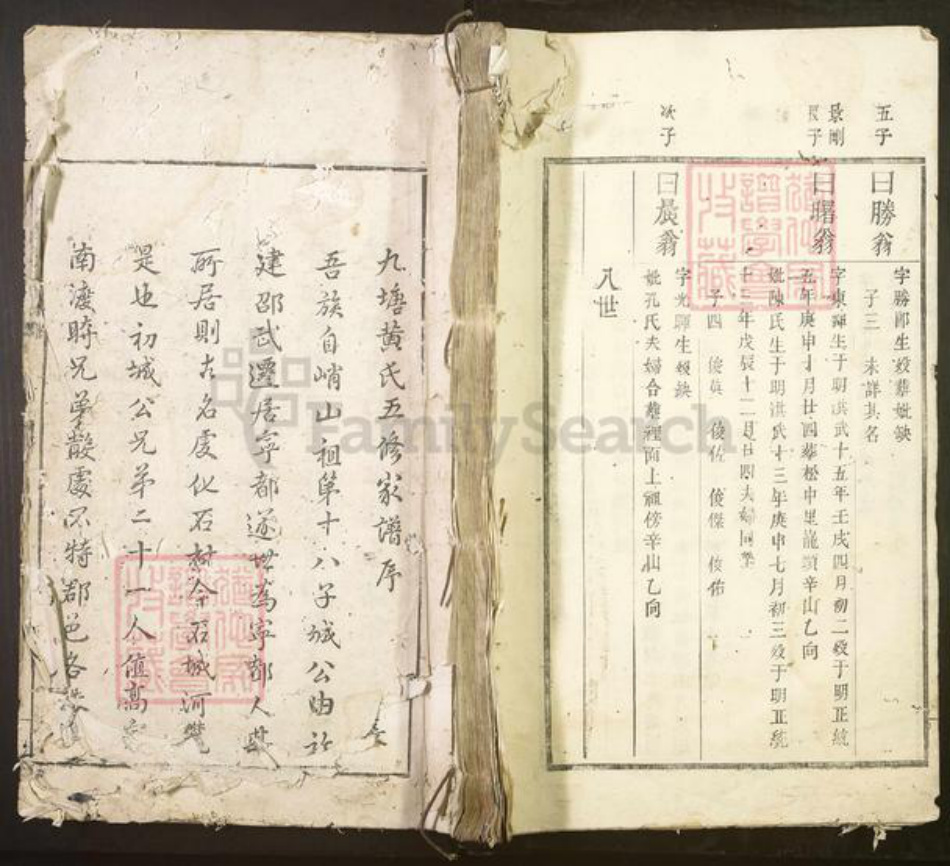 五子
曰勝翁
字勝郎生歿葬妣缺
子三 未詳其名
景剛
長子
曰曙翁
字東輝生于明洪武十五年壬戌四月初二歿于明正統
五年庚申十月廿四葬松中里龍頭辛山乙向
妣陳氏生于明洪武十三年庚申七月初三歿于明正統
十三年戊辰十二月廿四夫婦同塋
子四 俊英 俊佐 俊傑 俊佑
次子
曰晨翁
字光輝生歿缺
妣孔氏夫婦合葬裡面上祖傍辛山乙向
八世
九塘黄氏五修家譜序
吾族自峭山祖第十八子城公由
建邵武遷居寧都遂世爲寧都人
所居則古名虔化石村今石城河
是也初城公兄弟二十一人值高
南渡時兄弟散處不特郡邑各
FamilySearch
譜學會
收藏